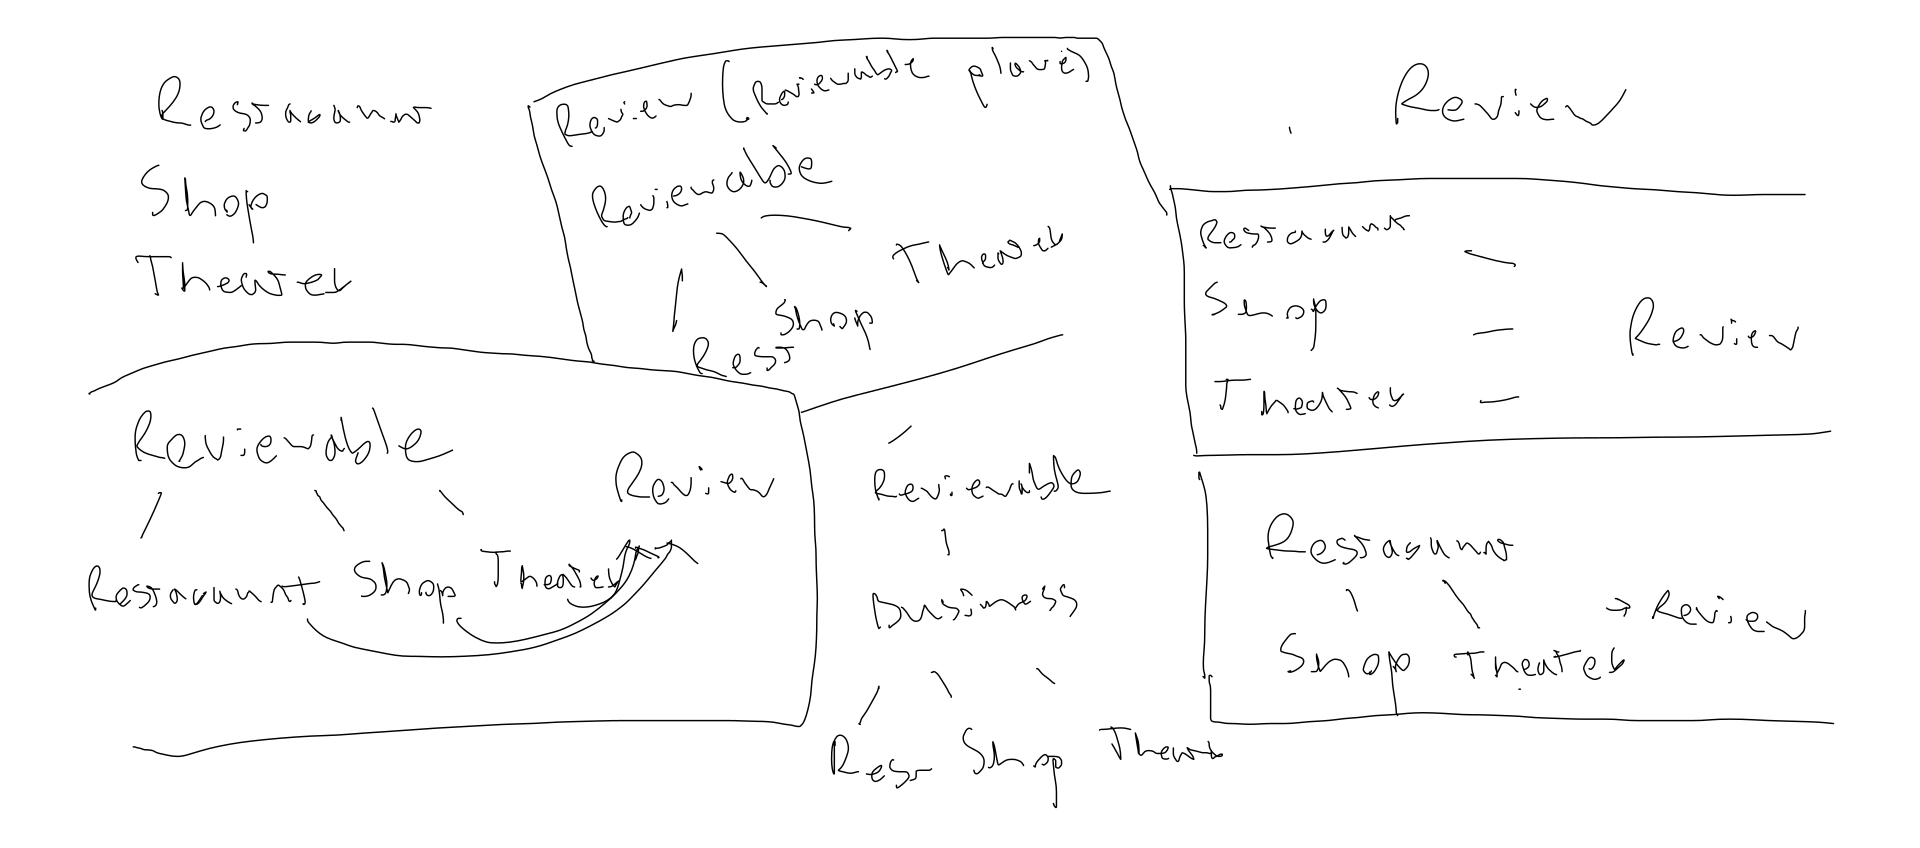 Restaurant
Shop
Theater
Review (Reviewable place)
Reviewable
Theater
Shop
Rest
Review
Restaurant
Shop
Theater
Review
Reviewable
Review
Restaurant Shop Theater
Reviewable
Business
Rest Shop Theater
Restaurant
→ Review
Shop Theater